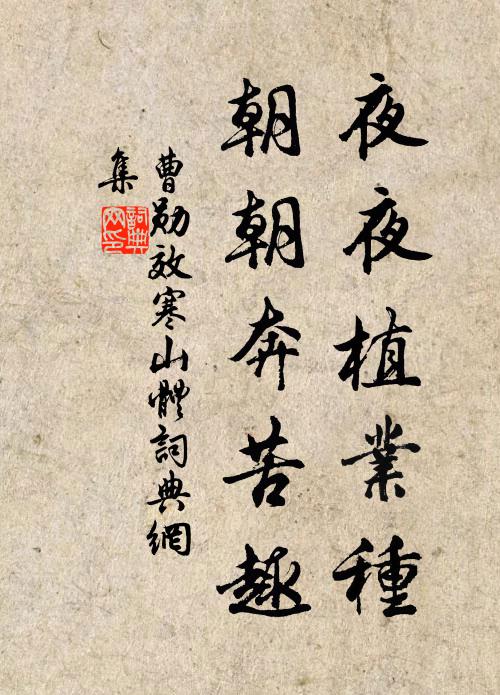 夜夜植業種
朝朝奔苦趣
曹勛效寒山體詞典網
集
詞典
网印